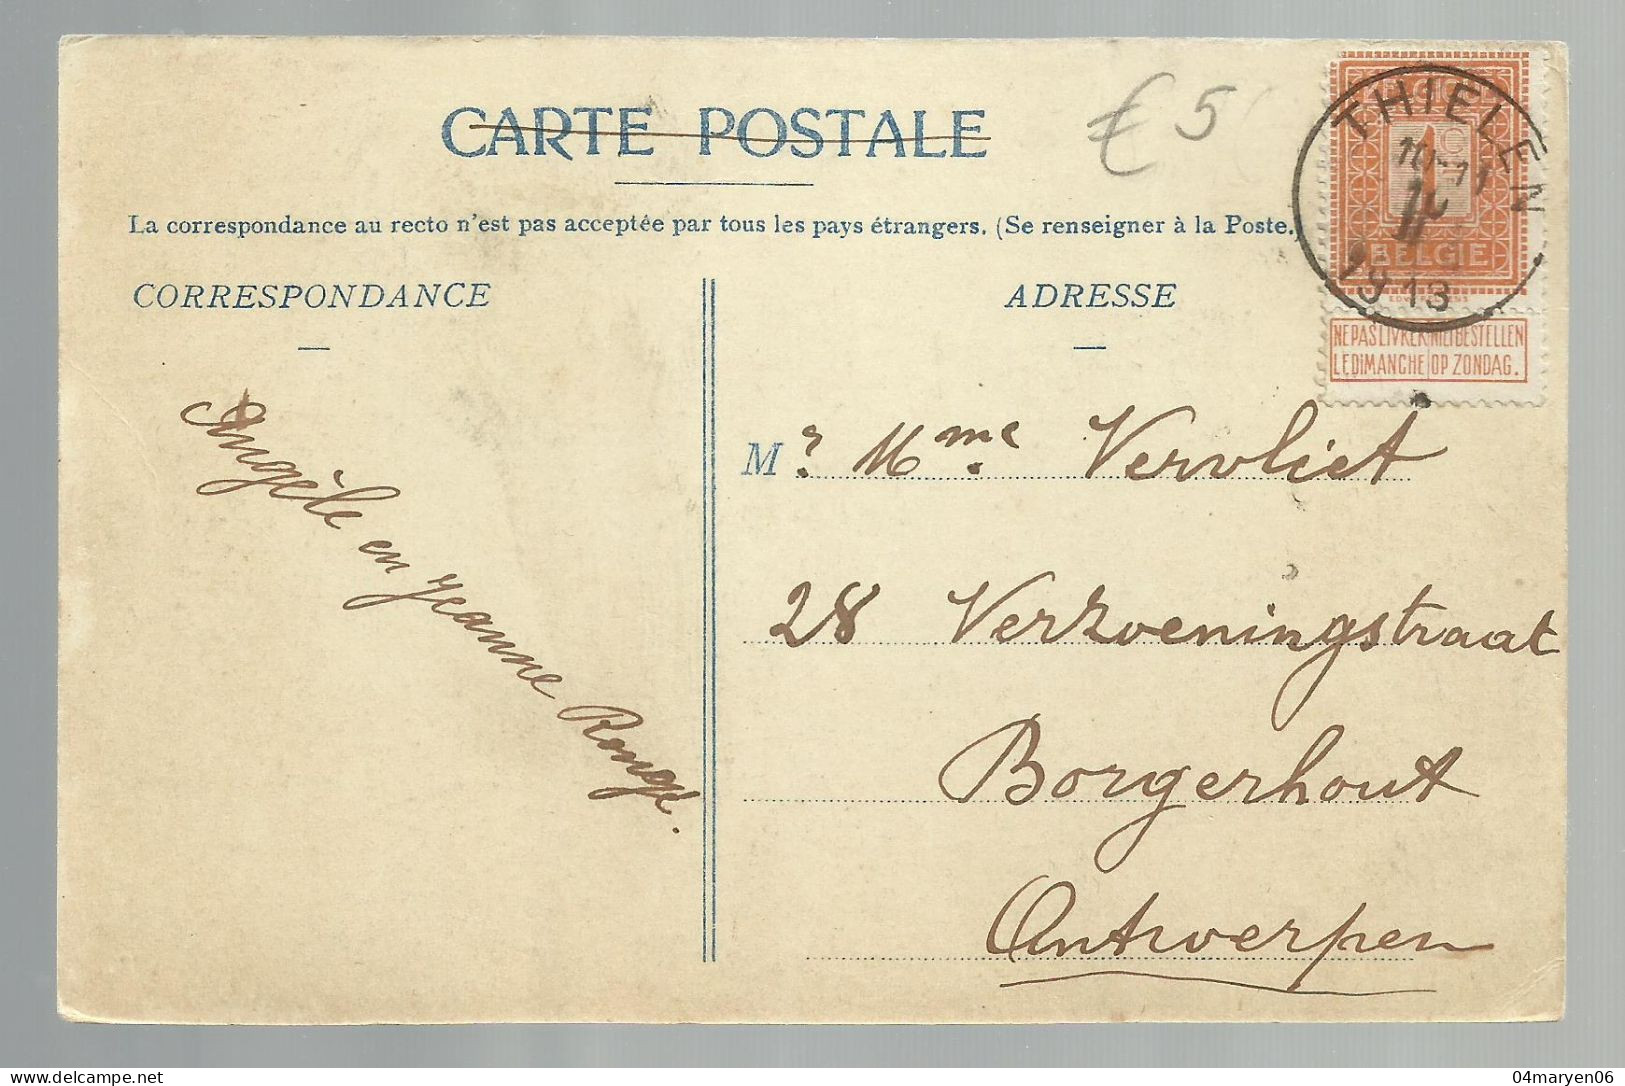 CARTE POSTALE
€ 5
La correspondance au recto n'est pas acceptée par tous les pays étrangers. (Se renseigner à la Poste.)
CORRESPONDANCE
ADRESSE
THIELEN
10-11
1913
1
BELGIE
NE PAS LIVRER LE DIMANCHE
NIET BESTELLEN OP ZONDAG.
Angèle en Jeanne Rongé.
Mr. Mme. Vervliet
28 Verzoeningstraat
Borgerhout
Antwerpen
04maryen06